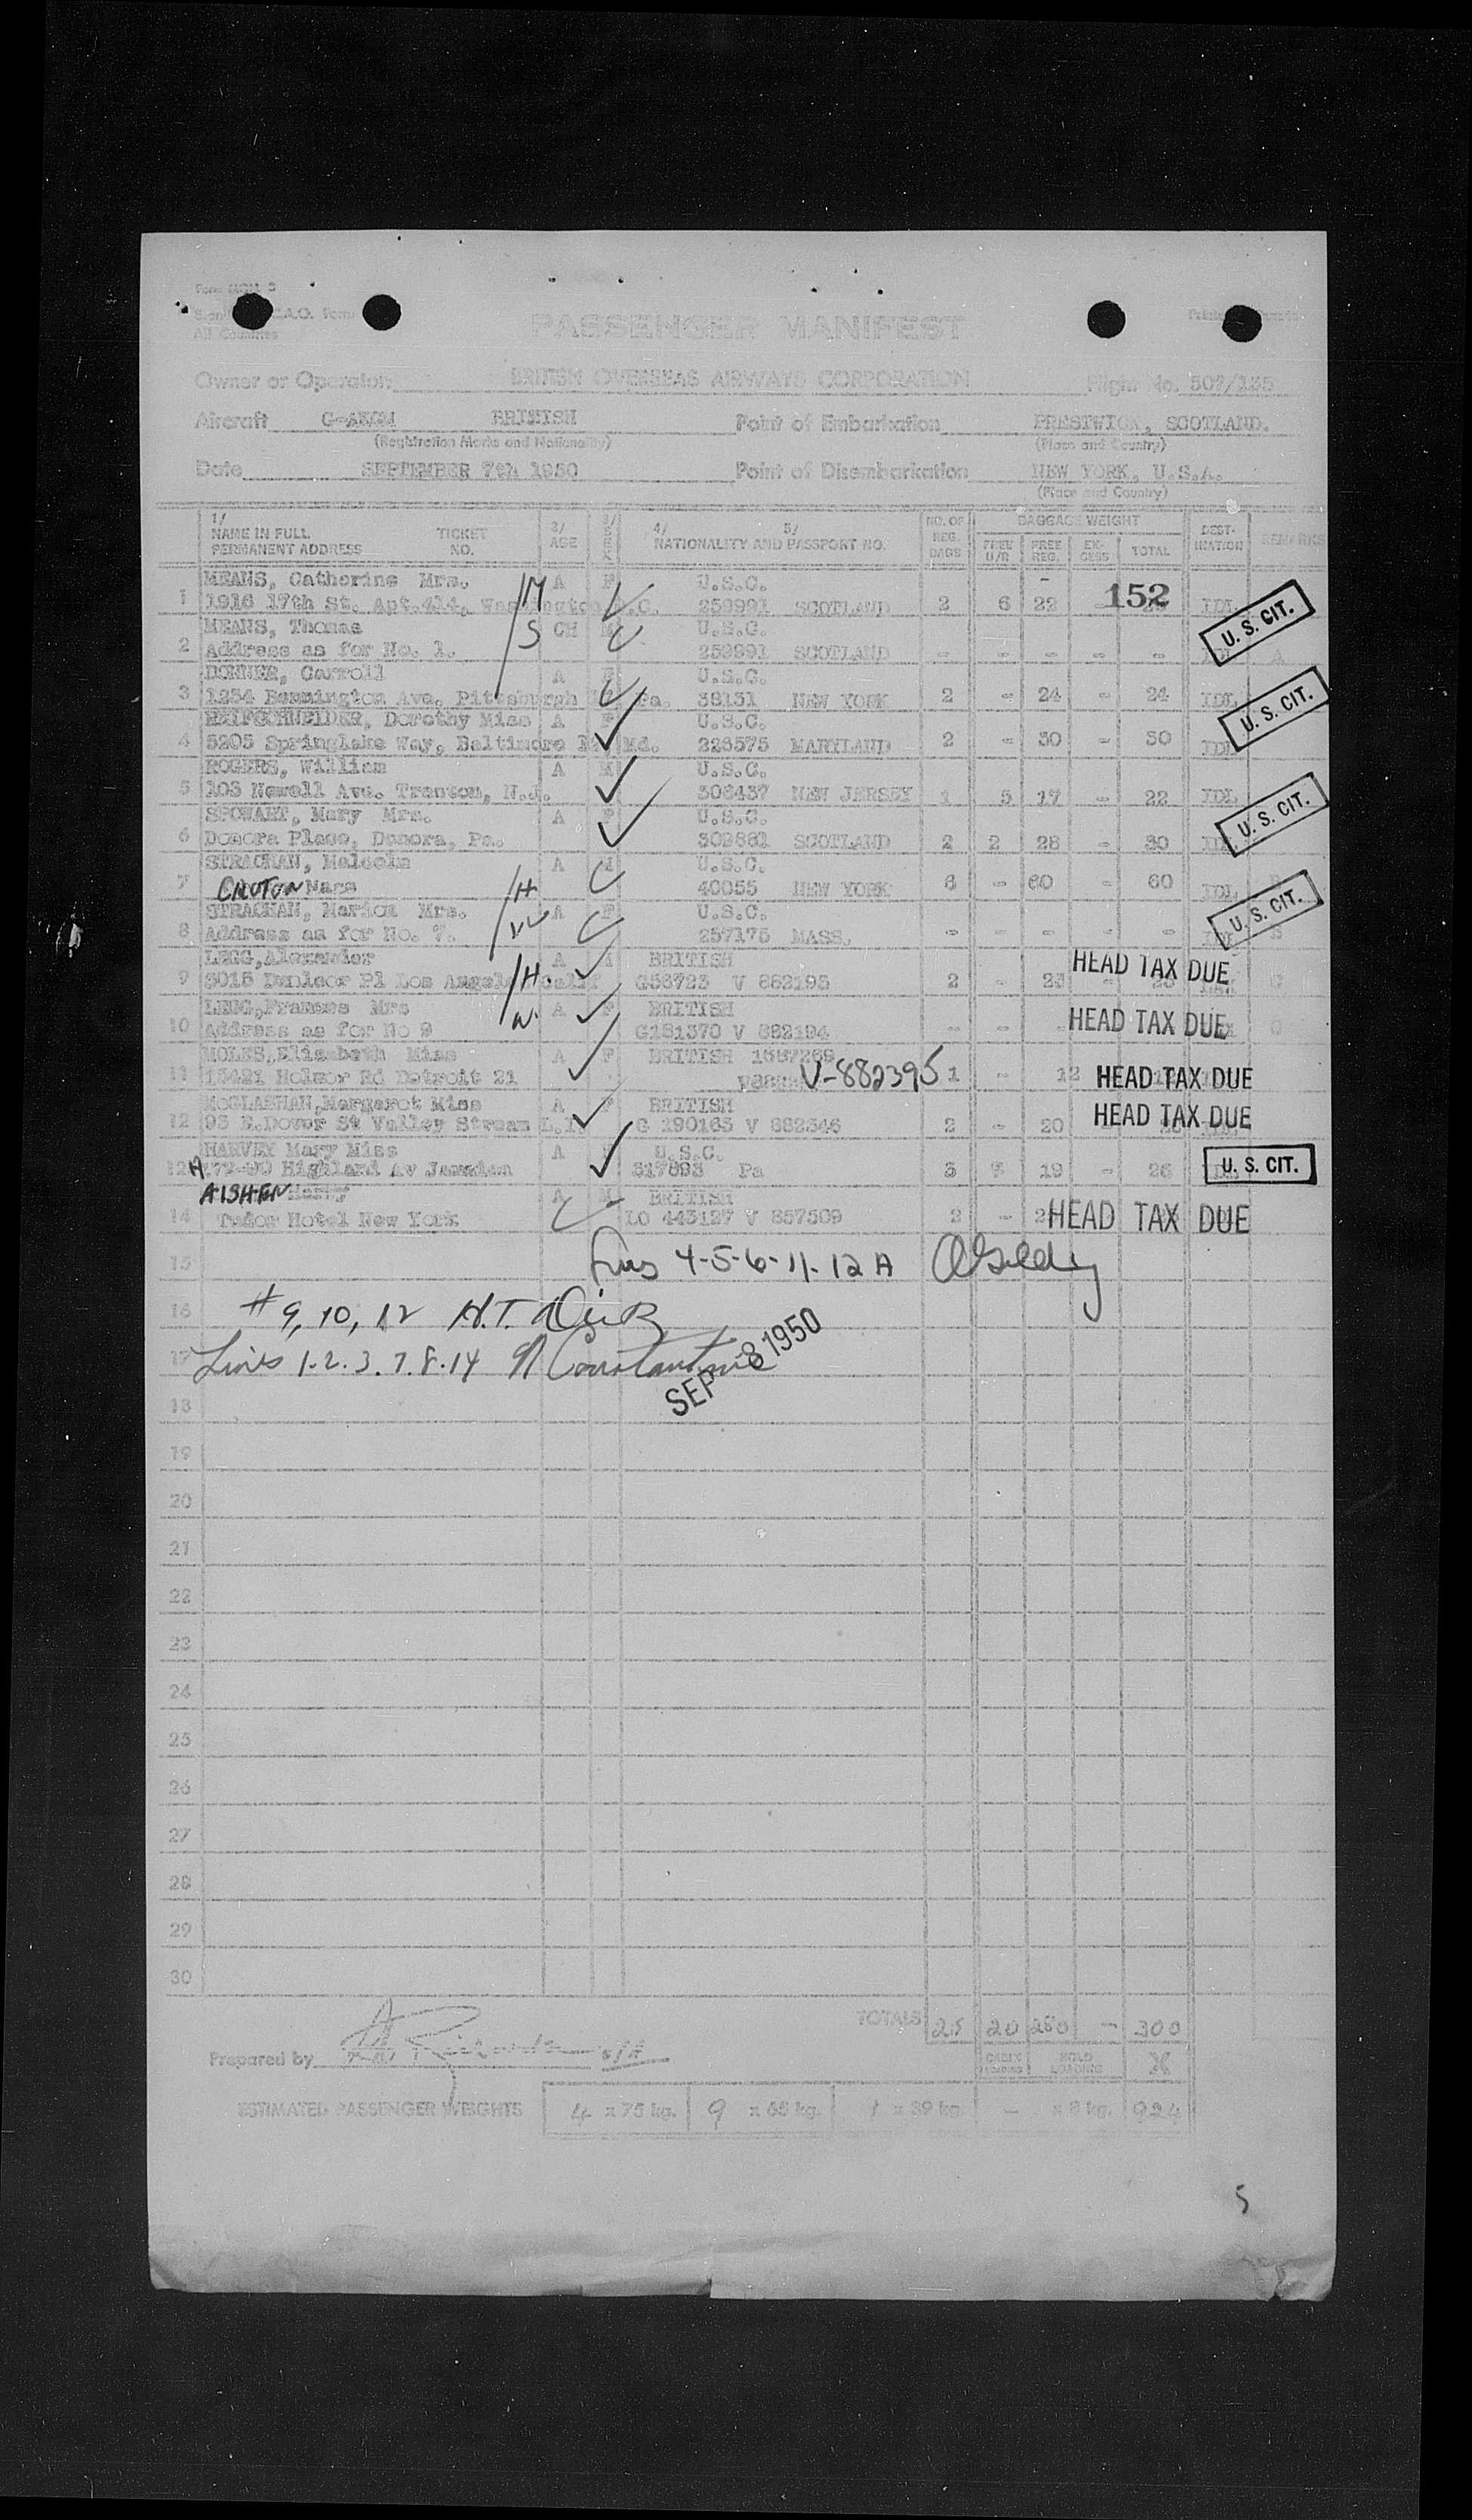 All Countries
PASSENGER MANIFEST
Owner or Operator BRITISH OVERSEAS AIRWAYS CORPORATION Flight No. 507/135
Aircraft BRITISH Point of Embarkation PRESTWICK, SCOTLAND.
(Registration Marks and Nationality) (Place and Country)
Date SEPTEMBER 7th 1950 Point of Disembarkation NEW YORK, U.S.A.
(Place and Country)
1/ NAME IN FULL PERMANENT ADDRESS TICKET NO. 2/ AGE 3/ SEX 4/ 5/ NATIONALITY AND PASSPORT NO. NO. OF REG. BAGS BAGGAGE WEIGHT FREE U/R FREE REG. EX-CESS TOTAL DEST-INATION REMARKS
MEANS, Catherine Mrs. /M A F U.S.C. -
1 1916 17th St. Apt.414, Washington D.C. 259991 SCOTLAND 2 6 22 152 IDL U. S. CIT.
MEANS, Thomas /S CH M U.S.C.
2 Address as for No. 1. 259991 SCOTLAND - - - - - IDL A
DONNER, Carroll A F U.S.C.
3 1234 Bennington Ave. Pittsburgh Pa. 38131 NEW YORK 2 - 24 - 24 IDL U. S. CIT.
REIFSCHNEIDER, Dorothy Miss A F U.S.C.
4 5205 Springlake Way, Baltimore Md. 226575 MARYLAND 2 - 30 - 30 IDL
ROGERS, William A M U.S.C.
5 103 Newell Ave. Trenton, N.J. 306437 NEW JERSEY 1 5 17 - 22 IDL U. S. CIT.
SPOWART, Mary Mrs. A F U.S.C.
6 Donora Place, Donora, Pa. 309861 SCOTLAND 2 2 28 - 30 IDL
STRACHAN, Malcolm A M U.S.C.
7 CROTON /H 40055 NEW YORK 6 - 60 - 60 IDL U. S. CIT.
STRACHAN, Marion Mrs. /W A F U.S.C.
8 Address as for No. 7. 257175 MASS. - - - - - B
LEGG, Alexander A M BRITISH HEAD TAX DUE
9 Pl Los Angeles Calif /H. G56723 V 882195 2 - 23 - C
LEGG, Frances Mrs /W. A F BRITISH
10 Address as for No 9 G181370 V 882194 - - HEAD TAX DUE C
MOLES, Elizabeth Miss A F BRITISH 1587269
11 15421 Holmur Rd Detroit 21 V-882395 1 - 12 HEAD TAX DUE
McGLASHAN, Margaret Miss A F BRITISH
12 93 E. Dover St Valley Stream L.I. G 190163 V 882346 2 - 20 HEAD TAX DUE
HARVEY Mary Miss A F U.S.C.
12 A 177-90 Highland Av Jamaica 317893 Pa 3 7 19 - 26 U. S. CIT.
A M BRITISH
14 Tudor Hotel New York LO 443127 V 857509 2 - HEAD TAX DUE
15 Lines 4-5-6-11-12 A
16 # 9, 10, 12 H.T.
17 Lines 1.2.3.7.8.14 Constantine SEP - 8 1950
18
19
20
21
22
23
24
25
26
27
28
29
30
TOTALS 25 20 280 - 300
Prepared by CABIN LOADING HOLD LOADING X
ESTIMATED PASSENGER WEIGHTS 4 x 75 kg. 9 x 65 kg. 1 x 39 kg. - x 8 kg. 924
5